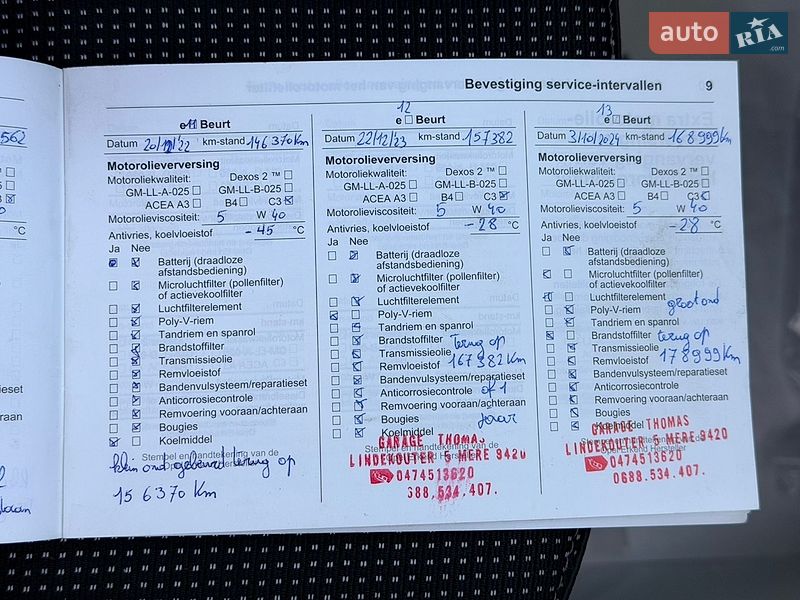 auto RIA .com
Bevestiging service-intervallen 9
562
e 11 Beurt
Datum 20/12/22 km-stand 146370Km
Motorolieverversing
Motoroliekwaliteit: Dexos 2 ™ □
GM-LL-A-025 □ GM-LL-B-025 □
ACEA A3 □ B4 □ C3 ☒
Motorolieviscositeit: 5 W 40
Antivries, koelvloeistof -45 °C
Ja Nee
Batterij (draadloze
afstandsbediening)
Microluchtfilter (pollenfilter)
of actievekoolfilter
Luchtfilterelement
Poly-V-riem
Tandriem en spanrol
Brandstoffilter
Transmissieolie
Remvloeistof
Bandenvulsysteem/reparatieset
Anticorrosiecontrole
Remvoering vooraan/achteraan
Bougies
Koelmiddel
Stempel en handtekening van de
klein ond gebeurd terug op
156370 Km
12
e □ Beurt
Datum 22/12/23 km-stand 157382
Motorolieverversing
Motoroliekwaliteit: Dexos 2 ™ □
GM-LL-A-025 □ GM-LL-B-025 □
ACEA A3 □ B4 □ C3 ☒
Motorolieviscositeit: 5 W 40
Antivries, koelvloeistof -28 °C
Ja Nee
Batterij (draadloze
afstandsbediening)
Microluchtfilter (pollenfilter)
of actievekoolfilter
Luchtfilterelement
Poly-V-riem
Tandriem en spanrol
Brandstoffilter terug op
Transmissieolie
Remvloeistof 167382Km
Bandenvulsysteem/reparatieset
Anticorrosiecontrole of 1
Remvoering vooraan/achteraan
Bougies jaar
Koelmiddel
Stempel en handtekening van de
GARAGE THOMAS
LINDEKOUTER 5 MERE 9420
0474513620
688.534.407.
13
e □ Beurt
Datum 3/10/2024 km-stand 168999Km
Motorolieverversing
Motoroliekwaliteit: Dexos 2 ™ □
GM-LL-A-025 □ GM-LL-B-025 □
ACEA A3 □ B4 □ C3 ☒
Motorolieviscositeit: 5 W 40
Antivries, koelvloeistof -28 °C
Ja Nee
Batterij (draadloze
afstandsbediening)
Microluchtfilter (pollenfilter)
of actievekoolfilter
Luchtfilterelement
Poly-V-riem groot ond
Tandriem en spanrol
Brandstoffilter terug op
Transmissieolie
Remvloeistof 178999Km
Bandenvulsysteem/reparatieset
Anticorrosiecontrole
Remvoering vooraan/achteraan
Bougies
Koelmiddel
GARAGE THOMAS
LINDEKOUTER 5 MERE 9420
0474513620
0688.534.407.